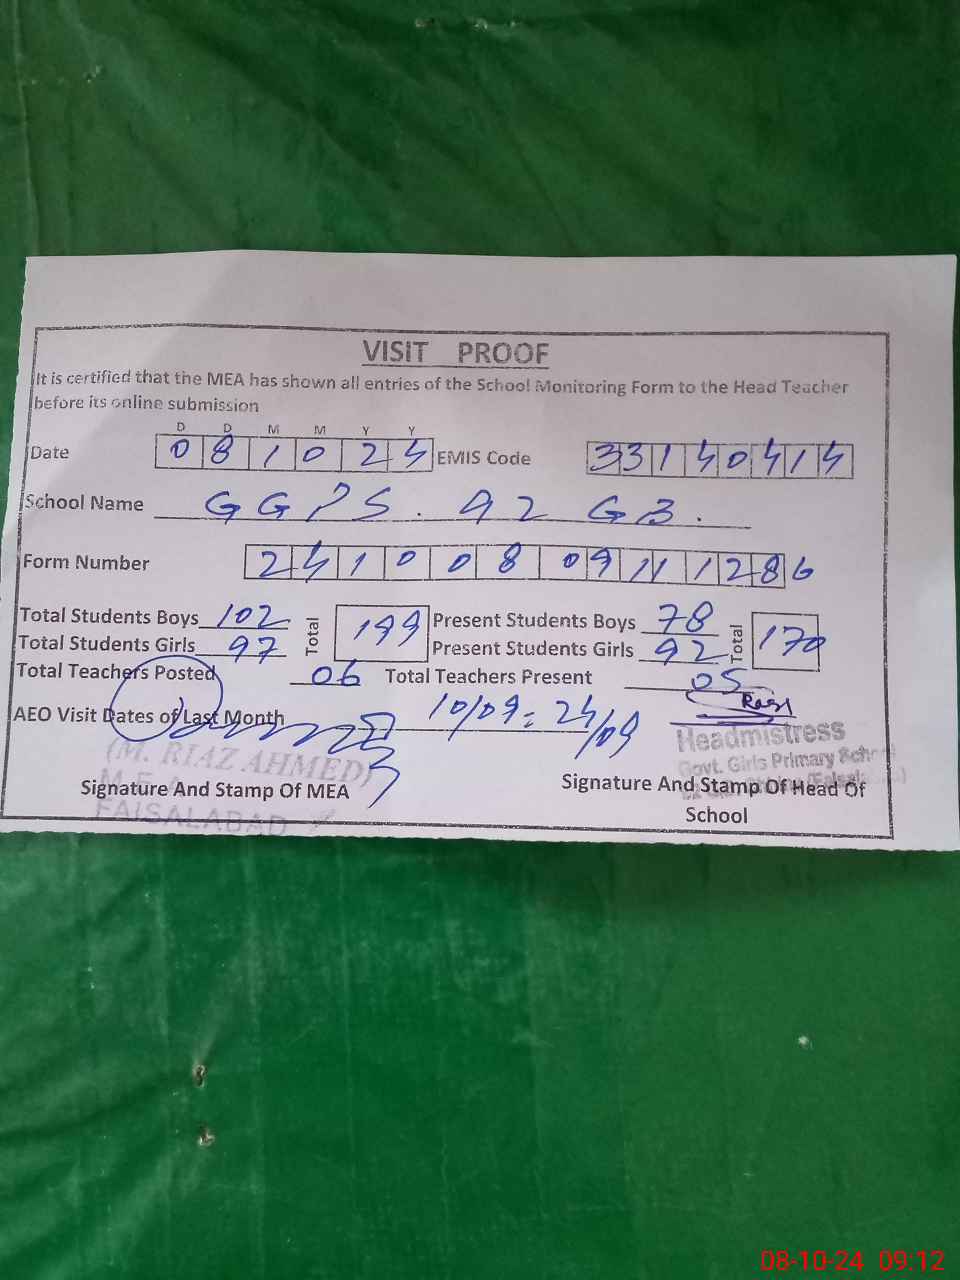 VISIT PROOF
It is certified that the MEA has shown all entries of the School Monitoring Form to the Head Teacher
before its online submission
D D M M Y Y
Date 081024 EMIS Code 33140414
School Name GGPS. 92 GB.
Form Number 24100809111286
Total Students Boys 102 Total 199 Present Students Boys 78 Total 170
Total Students Girls 97 Present Students Girls 92
Total Teachers Posted 06 Total Teachers Present 05
AEO Visit Dates of Last Month 10/09 = 24/09
(M. RIAZ AHMED)
M.E.A
FAISALABAD
Signature And Stamp Of MEA
Headmistress
Govt. Girls Primary School
Signature And Stamp Of Head Of
School
08-10-24 09:12